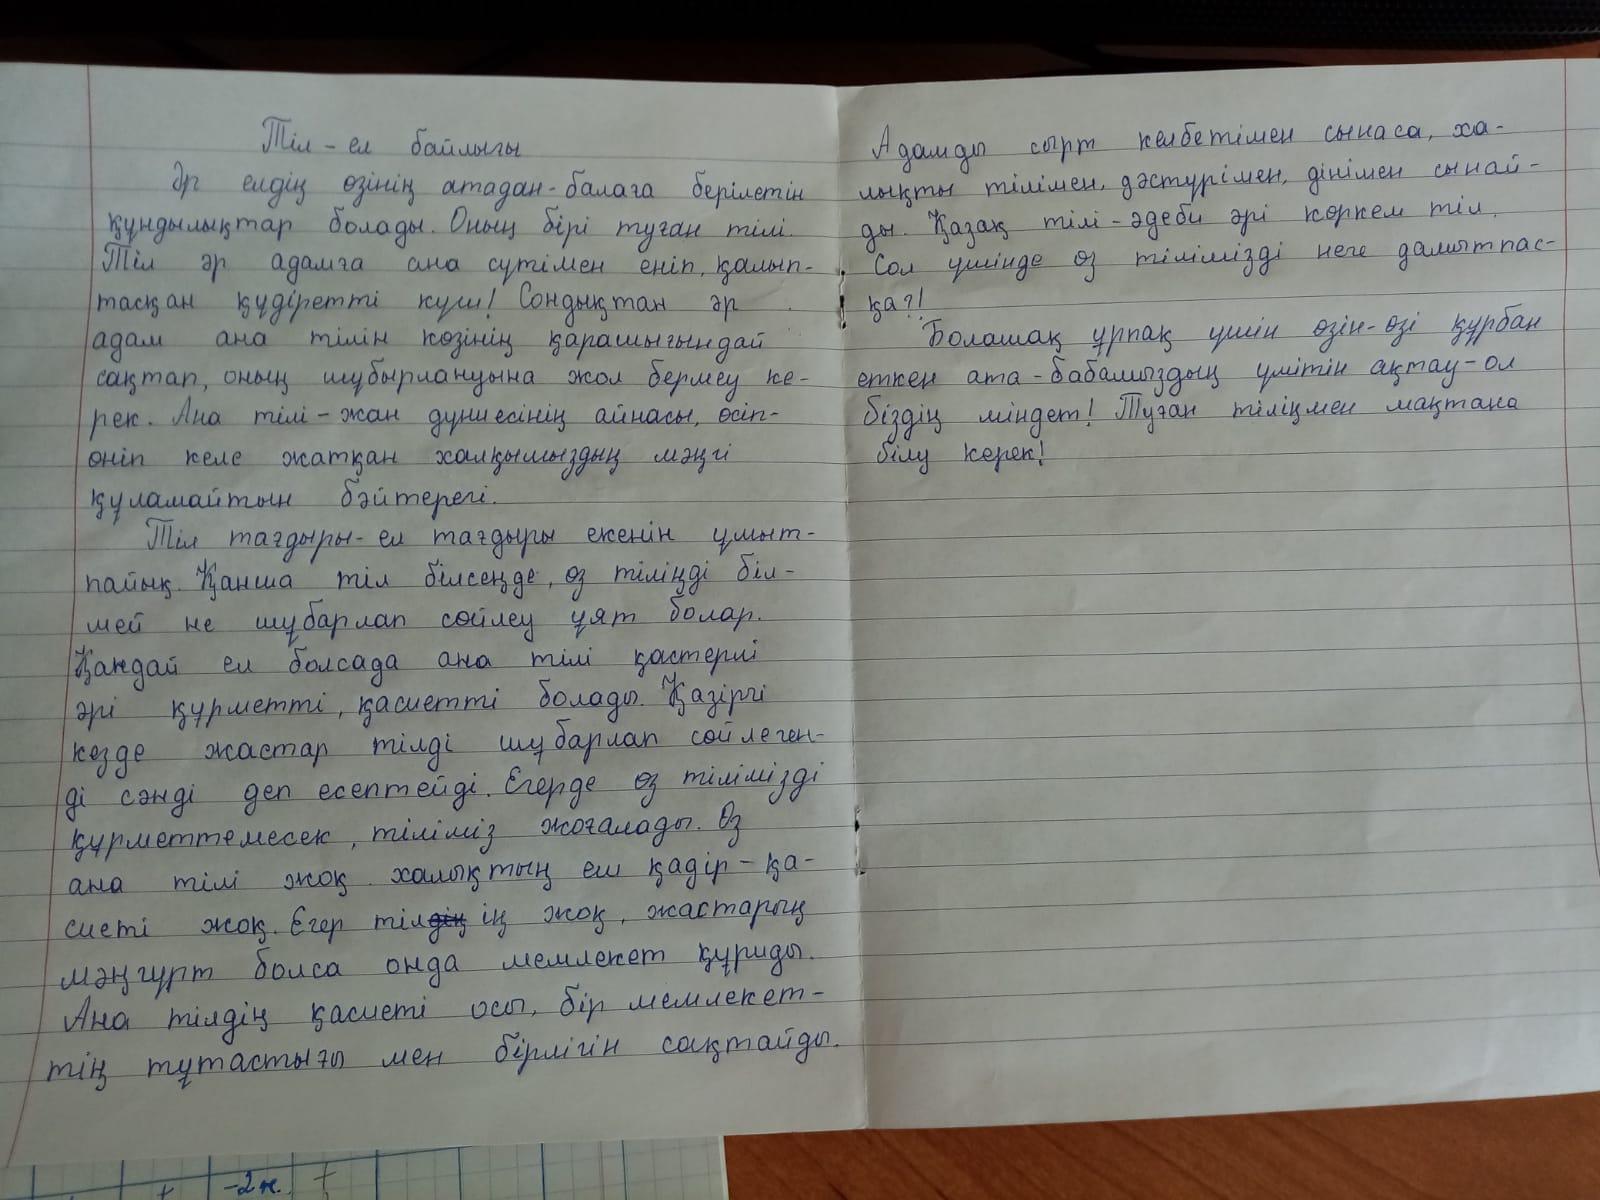 Тіл - ел байлығы
Әр елдің өзінің атадан-балаға берілетін
құндылықтар болады. Оның бірі туған тілі.
Тіл әр адамға ана сүтімен еніп, қалып-
тасқан құдіретті күш! Сондықтан әр
адам ана тілін көзінің қарашығындай
сақтап, оның шұбырлануына жол бермеу ке-
рек. Ана тілі - жан дүниесінің айнасы, өсіп-
өніп келе жатқан халқымыздың мәңгі
құламайтын бәйтерегі.
Тіл тағдыры - ел тағдыры екенін ұмыт-
пайық. Қанша тіл білсеңде, өз тіліңді біл-
мей не шұбарлап сөйлеу ұят болар.
Қандай ел болсада ана тілі қастерлі
әрі құрметті, қасиетті болады. Қазіргі
кезде жастар тілді шұбарлап сөйлеген-
ді сәнді деп есептейді. Егерде өз тілімізді
құрметтемесек, тіліміз жоғалады. Өз
ана тілі жоқ халықтың еш қадір-қа-
сиеті жоқ. Егер тілдің ің жоқ, жастарың
мәңгүрт болса онда мемлекет құриды.
Ана тілдің қасиеті осы, бір мемлекет-
тің тұтастығы мен бірлігін сақтайды.
Адамды сырт келбетімен сынаса, ха-
лықты тілімен, дәстүрімен, дінімен сынай-
ды. Қазақ тілі - әдеби әрі көркем тіл.
Сол үшінде өз тілімізді неге дамытпас-
қа?!
Болашақ ұрпақ үшін өзін-өзі құрбан
еткен ата-бабамыздың үмітін ақтау - ол
біздің міндет! Туған тіліңмен мақтана
білу керек!
-2 к.